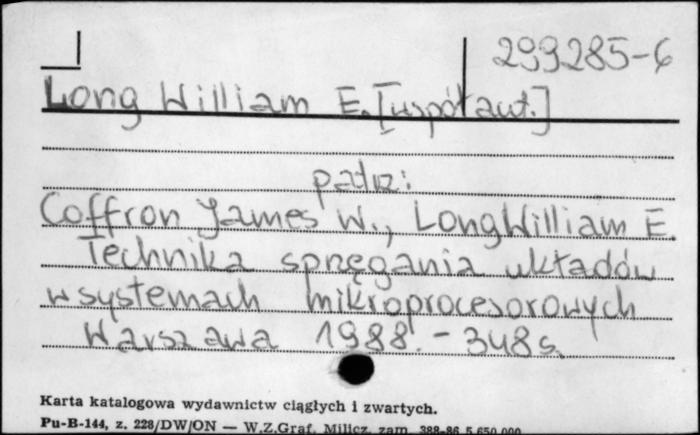 299285-6
Long William E. [współaut.]
patrz:
Coffron James W., Long William E.
Technika sprzęgania układów
w systemach mikroprocesorowych
Warszawa 1988. - 348 s.
Karta katalogowa wydawnictw ciągłych i zwartych.
Pu-B-144, z. 228/DW/ON — W.Z.Graf. Milicz, zam. 388-86 5 650 000